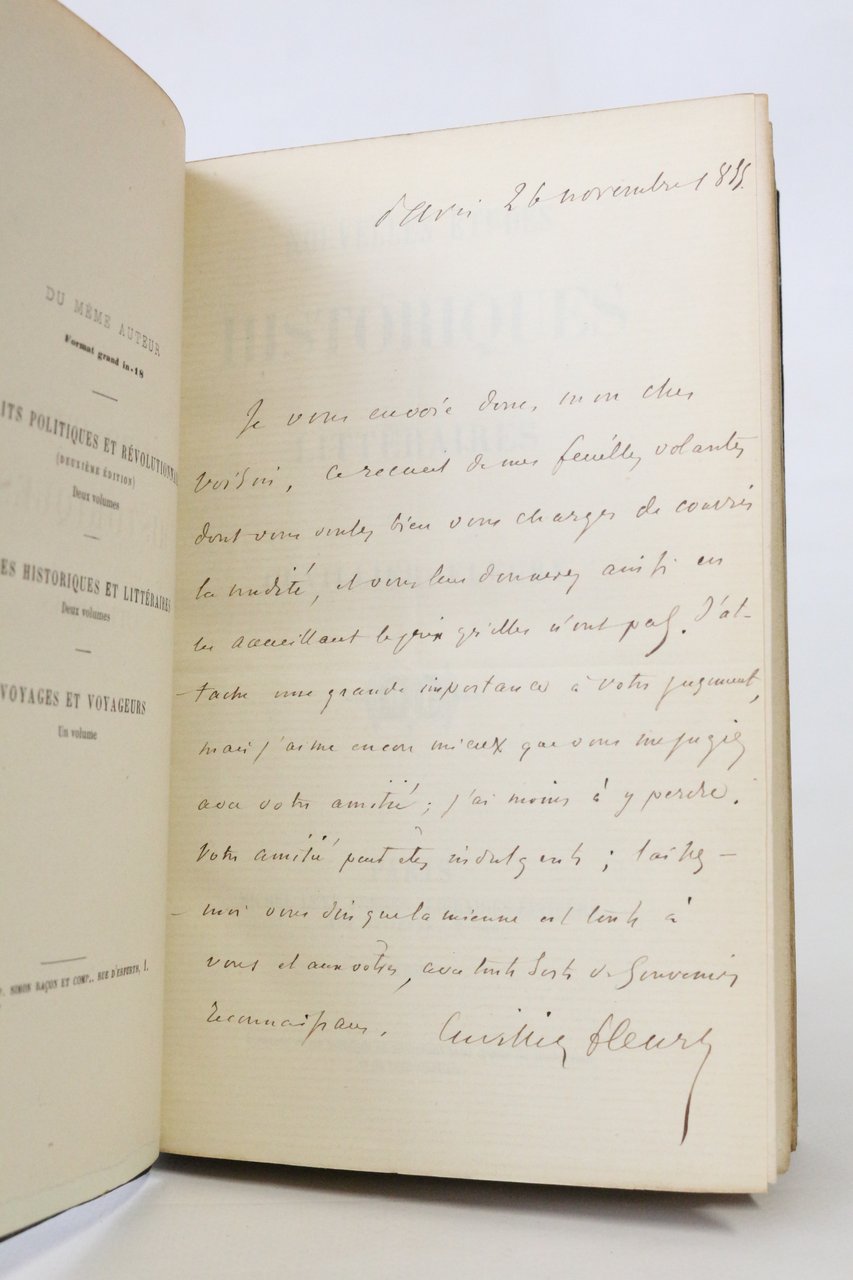 DU MÊME AUTEUR
Format grand in-18
ITS POLITIQUES ET RÉVOLUTIONN
(DEUXIÈME ÉDITION)
Deux volumes
ES HISTORIQUES ET LITTÉRAIRES
Deux volumes
VOYAGES ET VOYAGEURS
Un volume
SIMON RAÇON ET COMP., RUE D'ERFURTH, 1.
Paris 26 novembre 1855.
Je vous envoie donc, mon cher
voisin, ce recueil de mes feuilles volantes
dont vous voulez bien vous charger de couvrir
la nudité, et vous leur donnerez ainsi en
les accueillant le prix qu'elles n'ont pas. J'at-
tache une grande importance à votre jugement,
mais j'aime encore mieux que vous me jugiez
avec votre amitié ; j'ai moins à y perdre.
Votre amitié peut être indulgente ; laissez-
moi vous dire que la mienne est toute à
vous et aux vôtres, avec toute sorte de souvenirs
reconnaissans. Cuvillier Fleury
NOUVELLES ÉTUDES
HISTORIQUES
LITTÉRAIRES